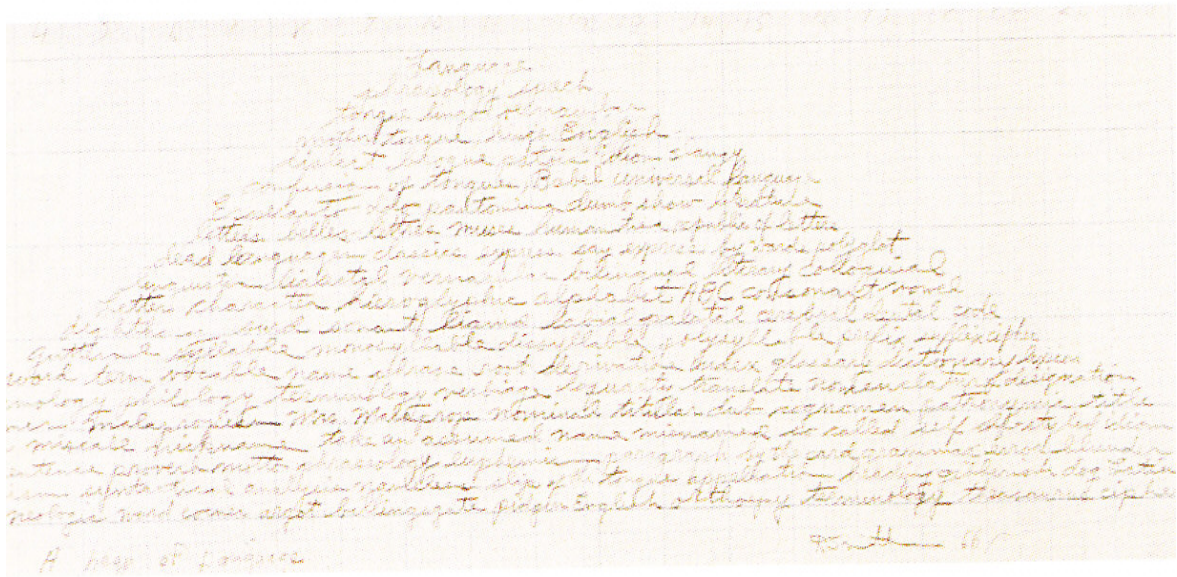 Language
phraseology speech
tongue lingo vernacular
mother tongue kings English
dialect brogue patois idiom slang
confusion of tongues, Babel universal language
Esperanto Ido pantomime dumb show literature
letters belles lettres muses humanities republic of letters
dead languages classics express say express by words polyglot
linguistic dialectal vernacular bilingual literary colloquial
letter character hieroglyphic alphabet ABC consonant vowel
diphthong surd sonant liquid labial palatal cerebral dental code
guttural syllable monosyllable dissyllable polysyllable prefix suffix cipher
word term vocable name phrase root derivative index glossary dictionary lexicon
philology terminology verbiage translate nomenclature designation
malapropism Mrs. Malaprop nominal titular dub cognomen patronymic title
miscall nickname take an assumed name misnamed so called self styled
sentence proverb motto phraseology euphemism paragraph grammar blunder
syntactical analysis slip of the tongue appellation jargon gibberish dog Latin
neologism word coiner argot billingsgate pidgin English orthoepy terminology thesaurus cipher
A heap of Language
R Smithson 66